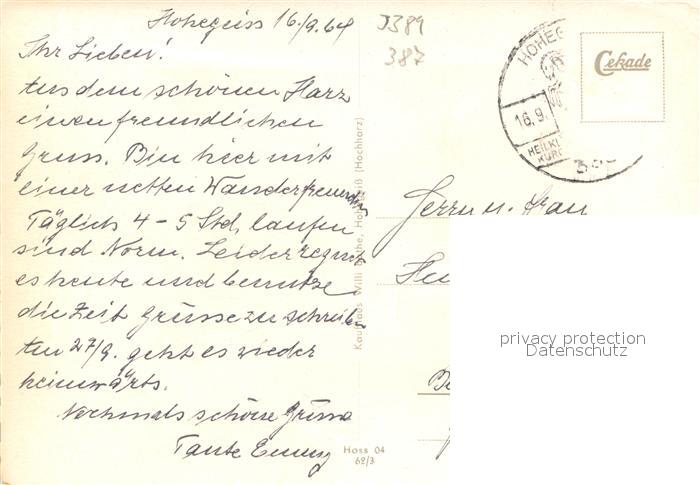 Hohegeiss 16/9.64
Ihr Lieben!
Aus dem schönen Harz
einen freundlichen
Gruss. Bin hier mit
einer netten Wanderfreundin
Täglich 4-5 Std, laufen
sind Norm. Leider regnet
es heute und benutze
die Zeit Grüsse zu schreiben
Am 27/9. geht es wieder
heimwärts.
Nochmals schöne Grüsse
Tante Emmy
Kaufhaus Willi , Hohegeiß (Hochharz)
Hoss 04
62/3
J389
387
HOHEG
16.9.
HEILKL
KURO
Cekade
Herrn u. Frau
privacy protection
Datenschutz